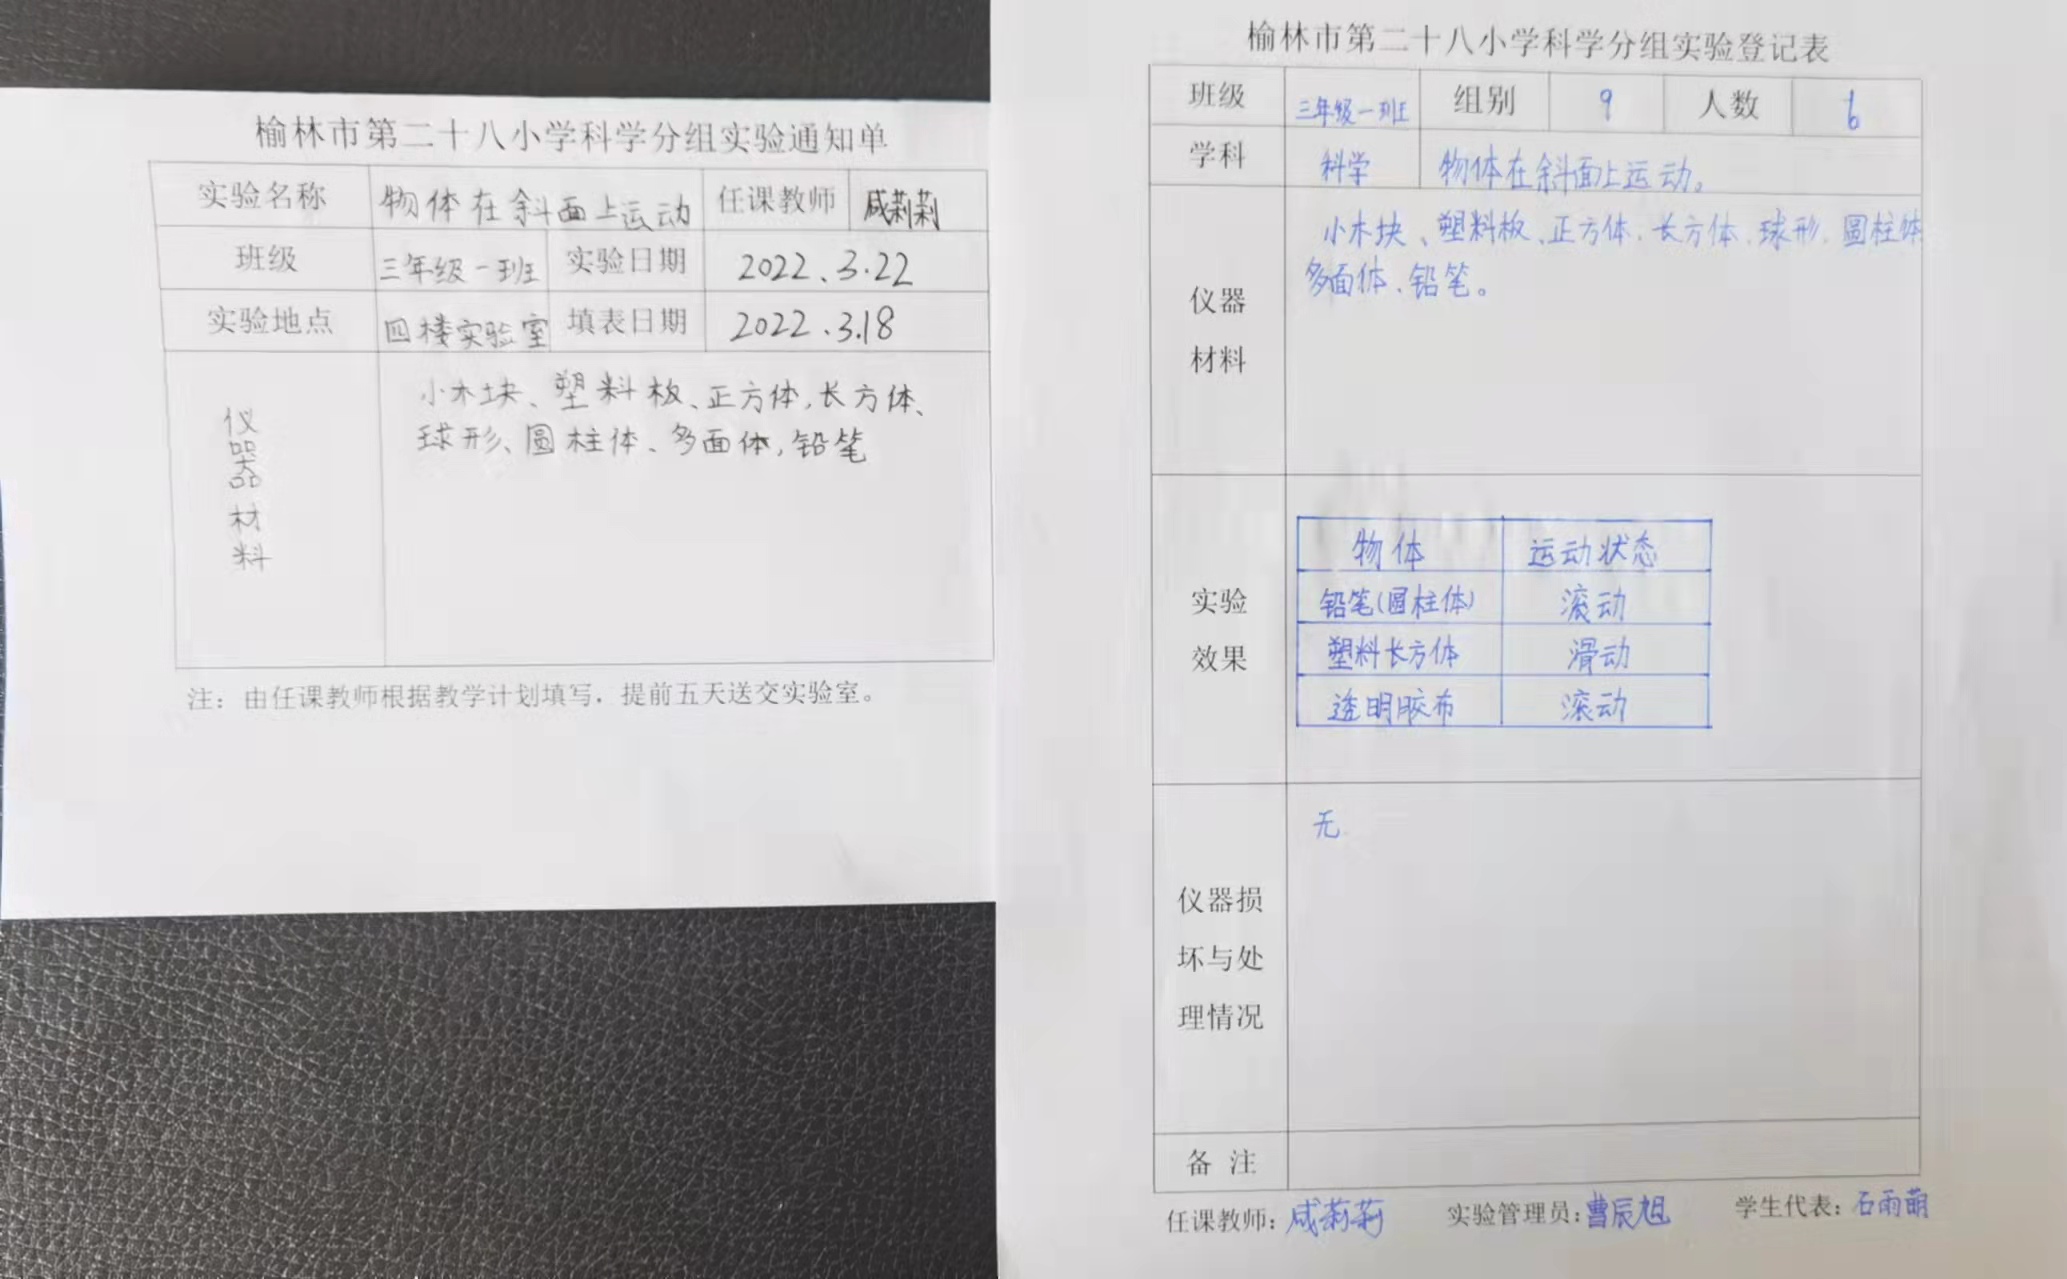 榆林市第二十八小学科学分组实验通知单
实验名称 物体在斜面上运动 任课教师 咸莉莉
班级 三年级一班 实验日期 2022.3.22
实验地点 四楼实验室 填表日期 2022.3.18
仪器材料
小木块、塑料板、正方体,长方体、
球形、圆柱体、多面体,铅笔
注：由任课教师根据教学计划填写，提前五天送交实验室。
榆林市第二十八小学科学分组实验登记表
班级 三年级一班 组别 9 人数 6
学科 科学 物体在斜面上运动。
仪器
材料
小木块、塑料板、正方体、长方体、球形、圆柱体
多面体、铅笔。
实验
效果
物体 运动状态
铅笔(圆柱体) 滚动
塑料长方体 滑动
透明胶布 滚动
仪器损
坏与处
理情况
无
备 注
任课教师：咸莉莉 实验管理员：曹辰旭 学生代表：石雨萌